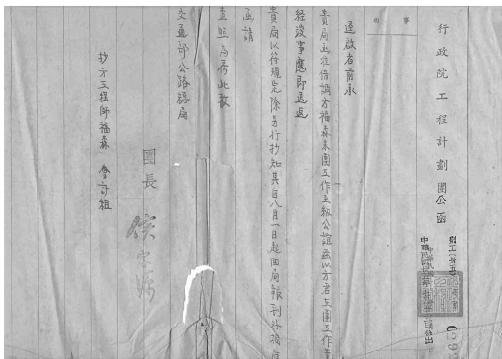 行政院工程計劃團公函
事
由
逕啟者前承
貴局函准借調方福森來團工作至紉公誼茲以方君在團工作業
經竣事應即遣返
貴局以符規定除另行抄知其自八月一日起回局報到外相應
函請
查照為荷此致
交通部公路總局
團長
抄方工程師福森 會計組